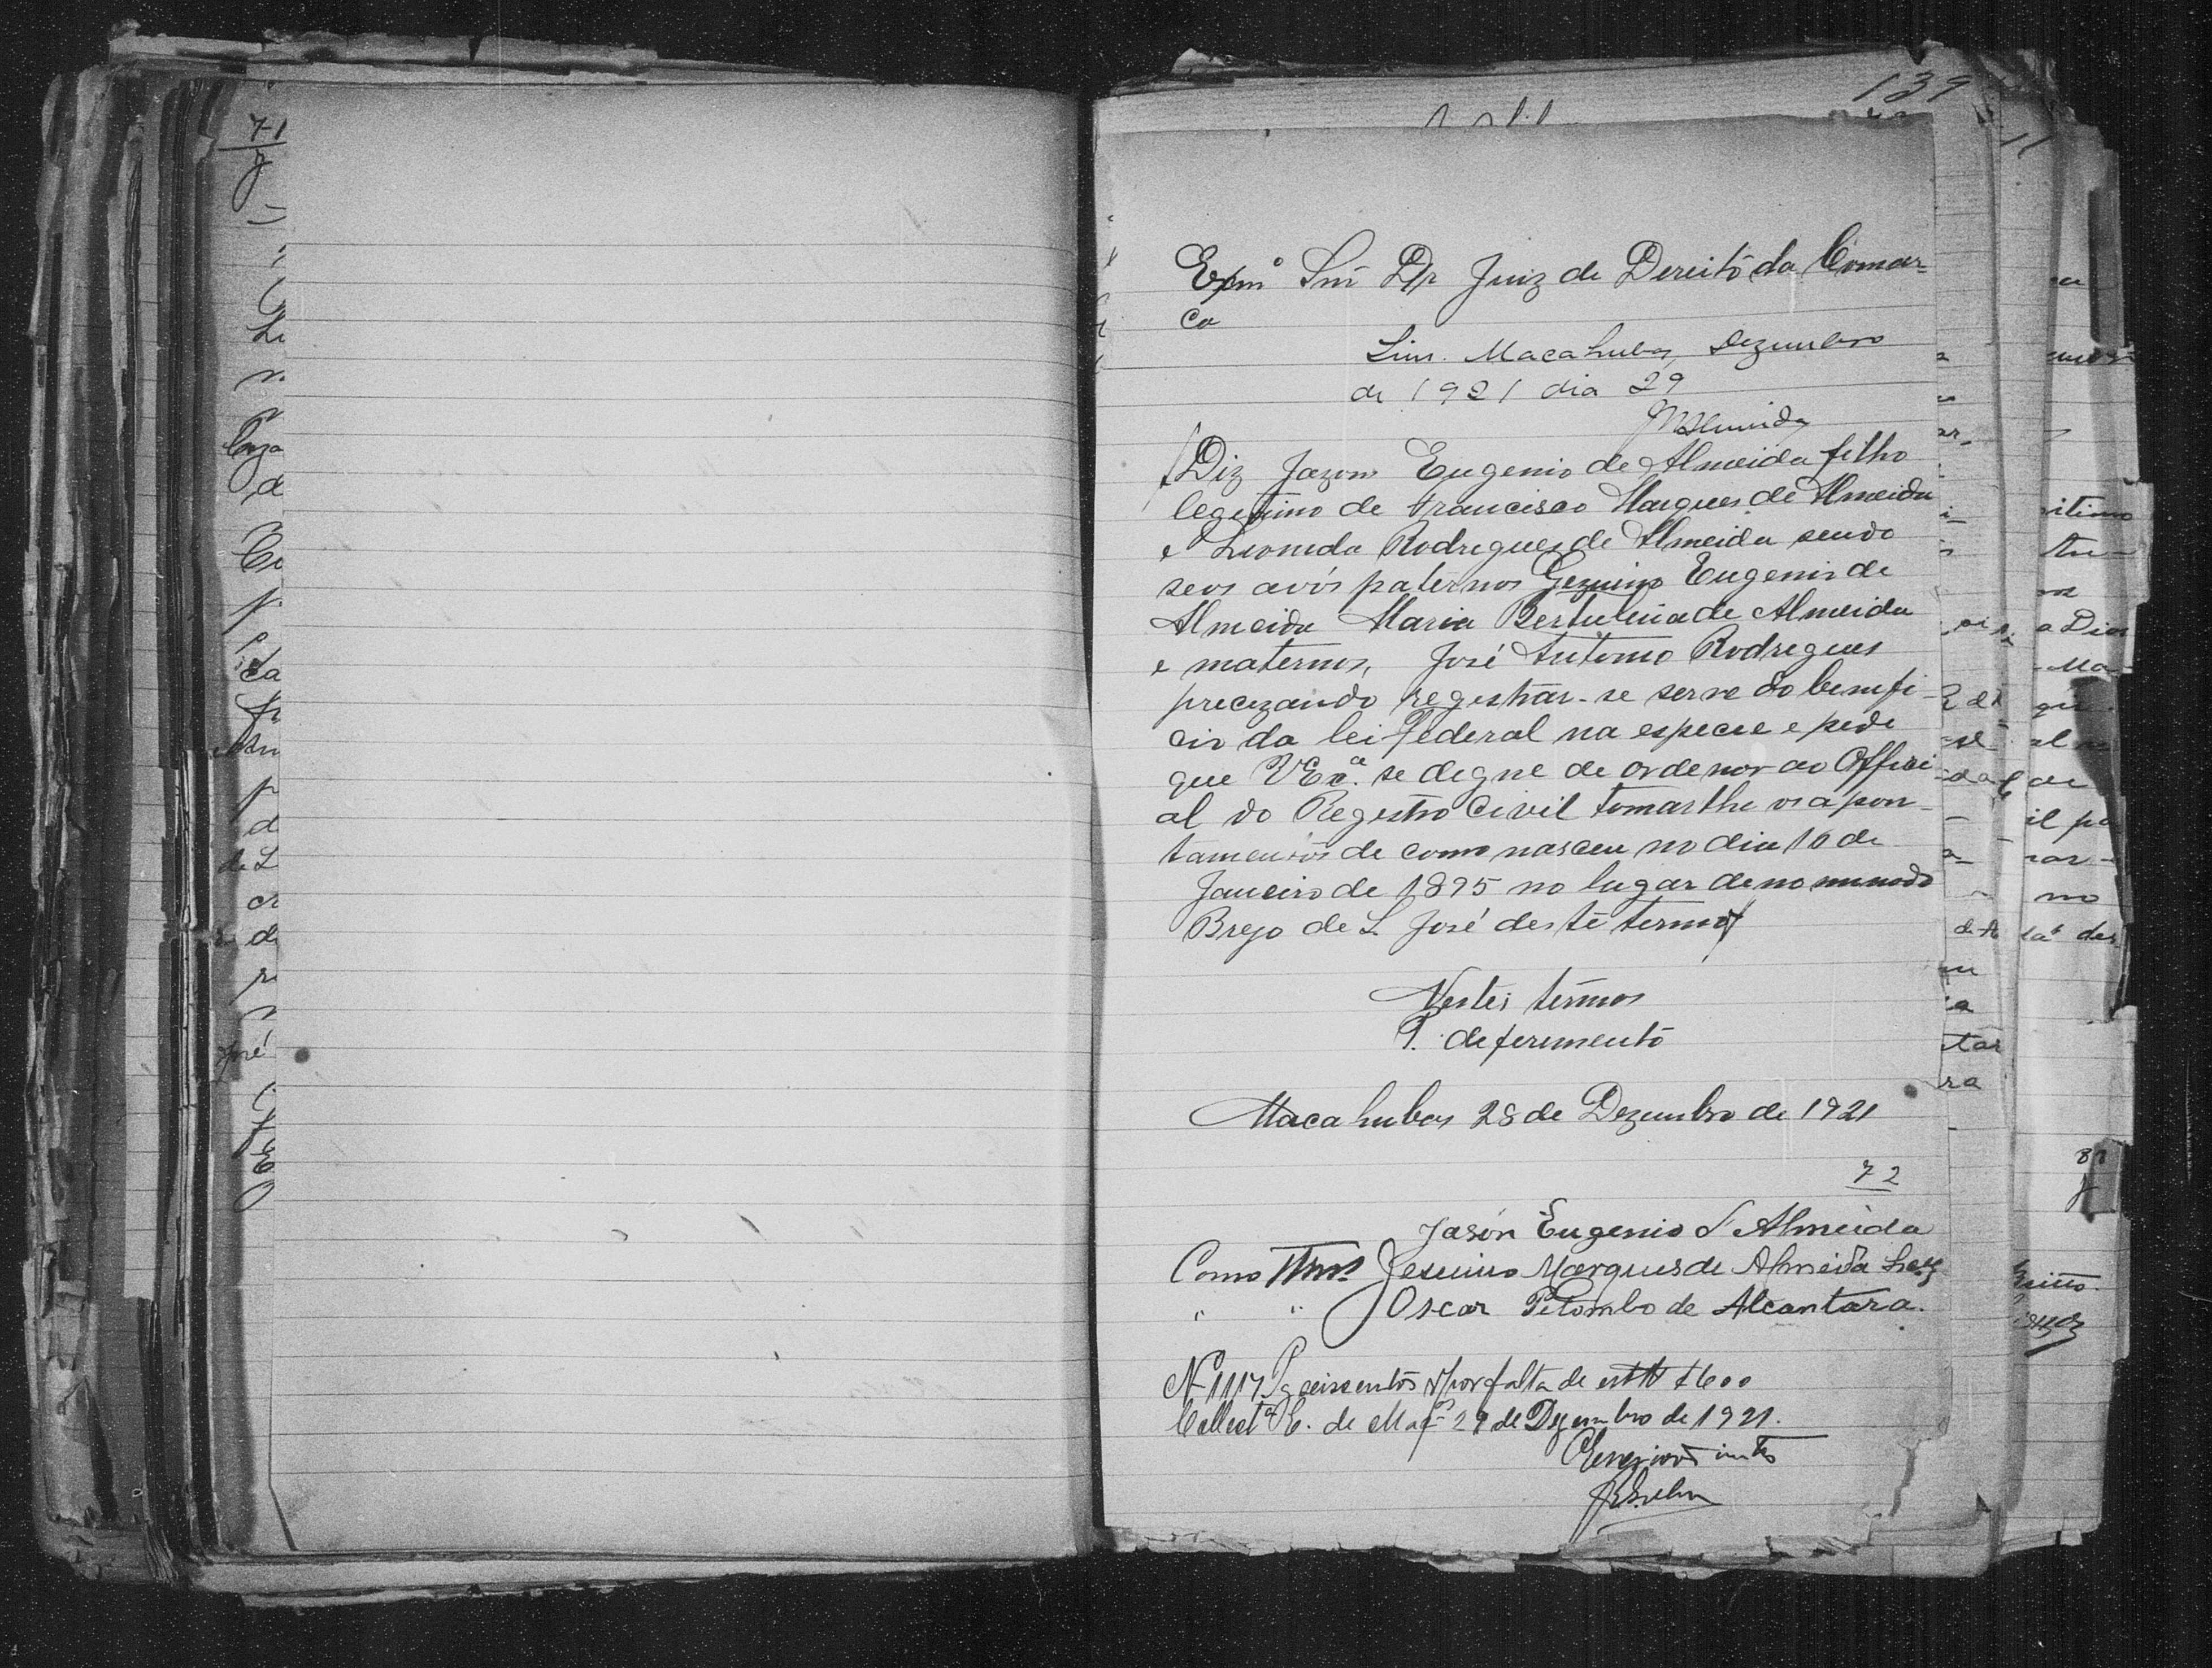 139
Exmº Snr Dr Juiz de Dereito da Comar=
ca
Sim. Macahubas, Dezembro
de 1921 dia 29
MAlmeida
Diz Jazon Eugenio de Almeida filho
legetimo de Francisco Marques de Almeida
e Leonida Rodrigues de Almeida sendo
seos avós paternos Gezuino Eugenio de
Almeida Maria Bertulina de Almeida
e maternos, José Antonio Rodrigues
precizando registrar-se serve do benefi-
cio da lei federal na especie e pede
que VExª. se degne de ordenar ao Offici-
al do Registro Civil tomar lhe os apon-
tamentos de como nasceu no dia 10 de
Janeiro de 1895 no lugar denominado
Brejo de S. José deste termo
Nestes termos
P. deferemento
Macahubas 28 de Dezembro de 1921
72
Jasón Eugenio d'Almeida
Como Tmas Jesuino Marques de Almeida
" " Oscar Pitombo de Alcantara.
Nº 1117 Pg seiscentos rs por falta de $600
Collectª de 29 de Dezembro de 1921.